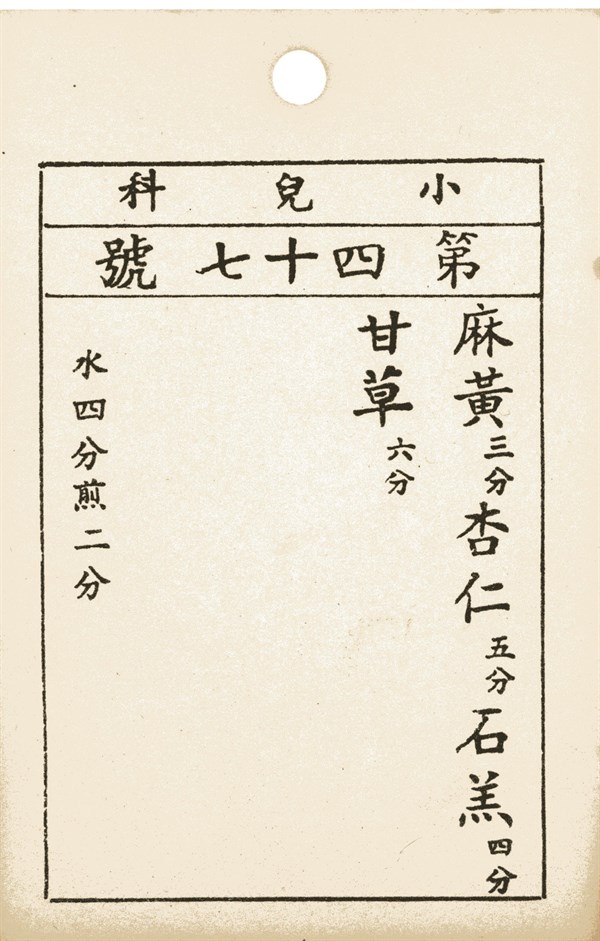 小兒科
第四十七號
麻黃三分杏仁五分石羔四分
甘草六分
水四分煎二分